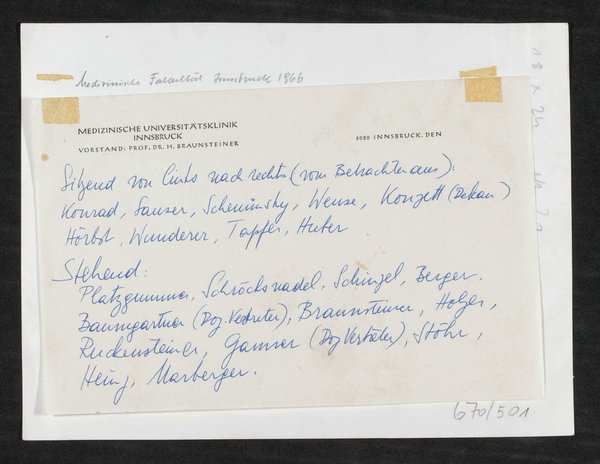 Medizinische Fakultät Innsbruck 1966
MEDIZINISCHE UNIVERSITÄTSKLINIK
INNSBRUCK
VORSTAND: PROF. DR. H. BRAUNSTEINER
6020 INNSBRUCK, DEN
Sitzend von links nach rechts (vom Betrachter aus):
Konrad, Sauser, Scheminzky, Weuse, Konzett (Dekan)
Hörbst, Wunderer, Tapfer, Huter
Stehend:
Platzgummer, Schröcksnadel, Schinzel, Berger,
Baumgartner (Doz Vertreter), Braunsteiner, Holzer,
Ruckensteiner, Gamser (Doz Vertreter), Stöhr,
Heinz, Marberger.
670/501
18 x 24